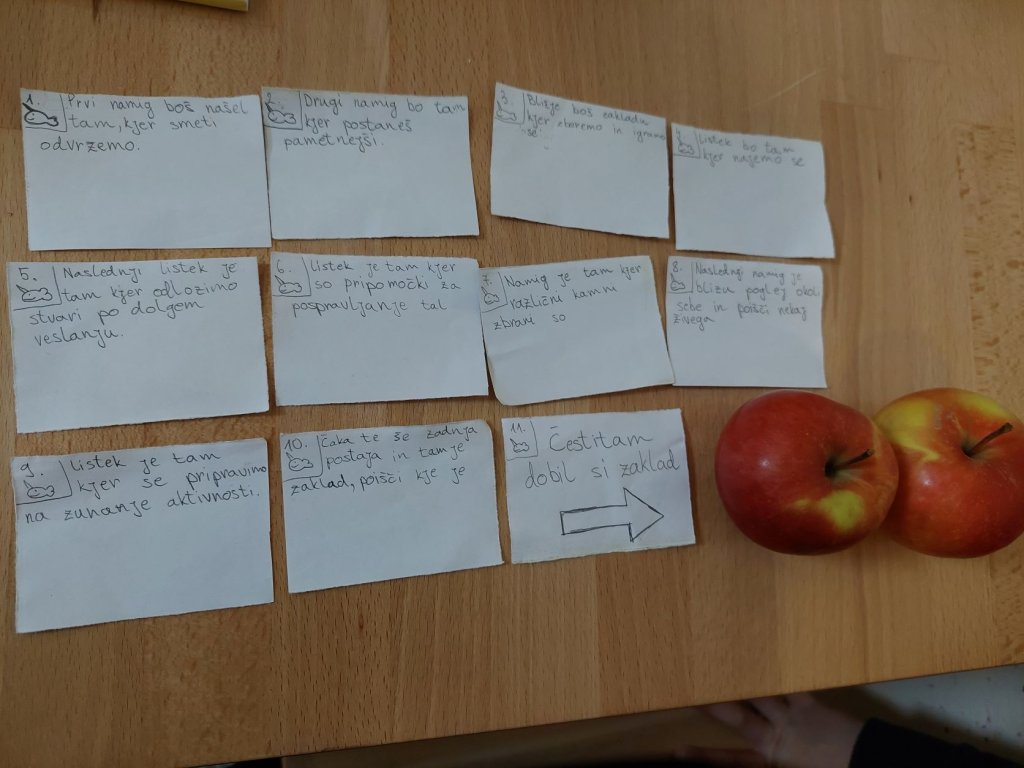 1. Prvi namig boš našel
tam, kjer smeti
odvržemo.
2. Drugi namig bo tam
kjer postaneš
pametnejši.
3. Bližje boš zakladu
kjer zberemo in igramo
se.
4. Listek bo tam
kjer najemo se
5. Naslednji listek je
tam kjer odložimo
stvari po dolgem
veslanju.
6. Listek je tam kjer
so pripomočki za
pospravljanje tal
7. Namig je tam kjer
različni kamni
zbrani so
8. Naslednji namig je
blizu poglej okoli
sebe in poišči nekaj
živega
9. Listek je tam
kjer se pripravimo
na zunanje aktivnosti.
10. Čaka te še zadnja
postaja in tam je
zaklad, poišči kje je
11. Čestitam
dobil si zaklad